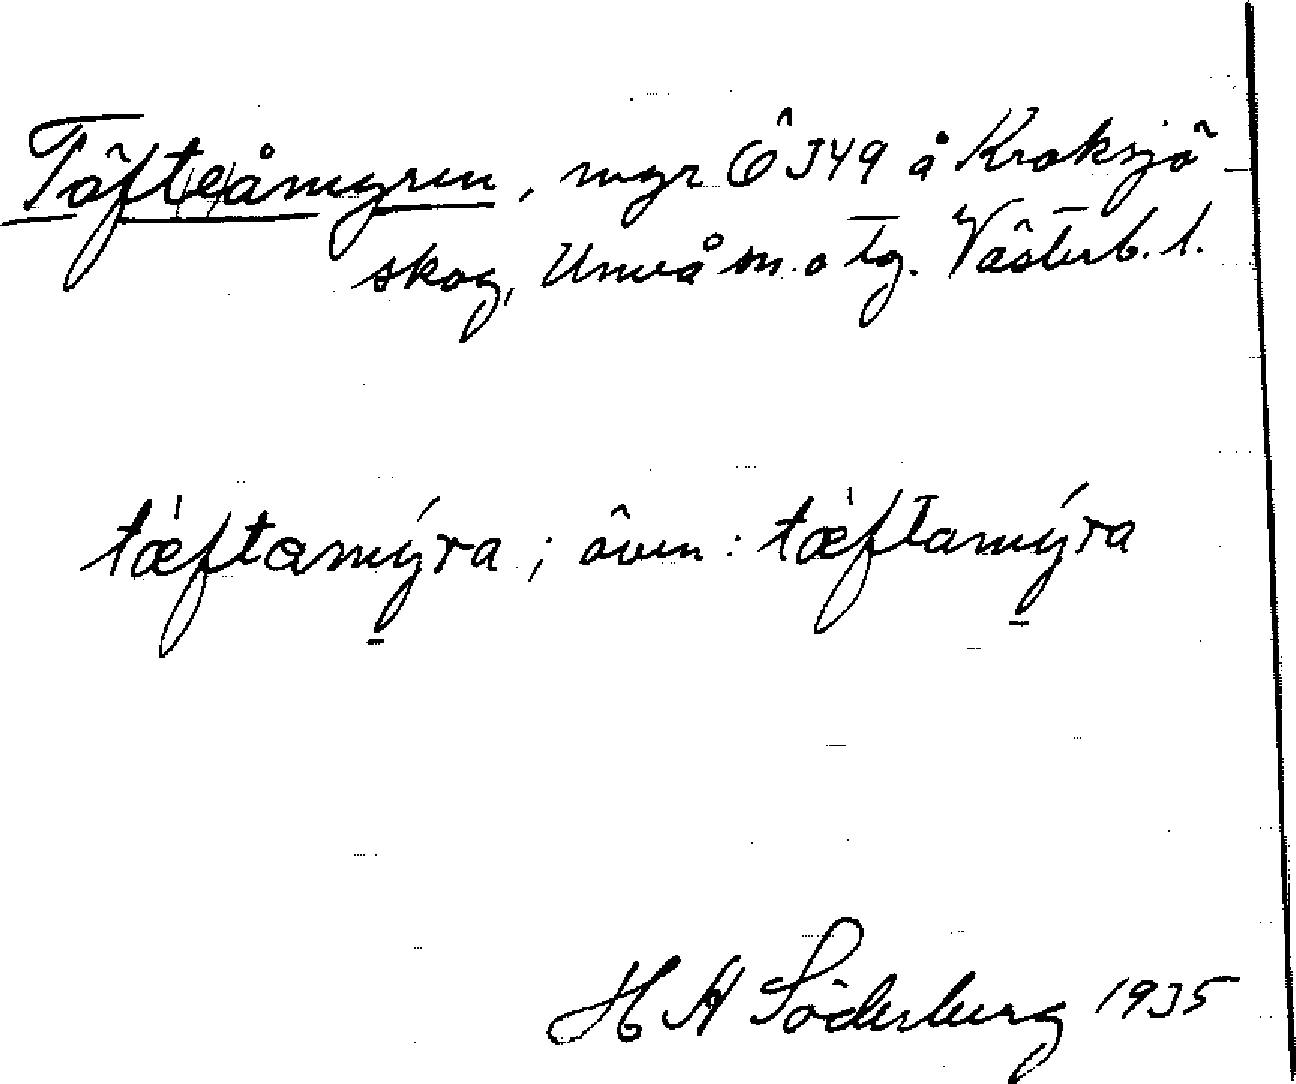 Täfteåmyren, myr Ö 349 å Kroksjö
skog, Umeå sn. o tg. Västerb. l.
tæ̀ftamýra ; även : tæ̀ftamýra
H A Söderberg 1935